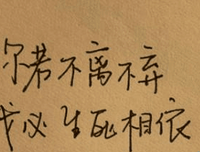 尔若不离不弃
我必生死相依